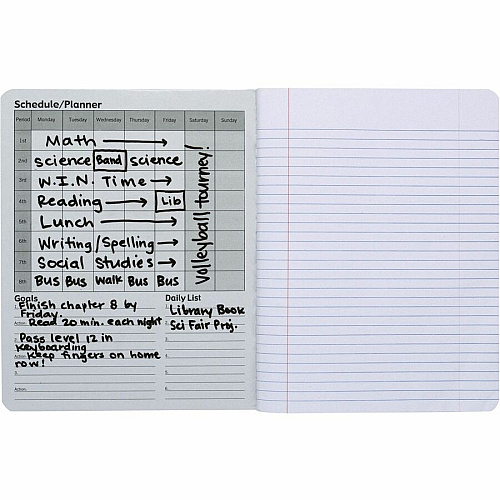 Schedule/Planner
Period Monday Tuesday Wednesday Thursday Friday Saturday Sunday
1st Math →
2nd Science Band Science
3rd W.I.N. Time →
4th Reading → Lib
5th Lunch →
6th Writing/Spelling →
7th Social Studies →
8th Bus Bus Walk Bus Bus
Volleyball tourney!
Goals
1. Finish chapter 8 by
Friday.
Action: Read 20 min. each night
2. Pass level 12 in
Keyboarding
Action: Keep fingers on home
row!
3.
Action:
Daily List
1. Library Book
2. Sci Fair Proj.
3.
4.
5.
6.